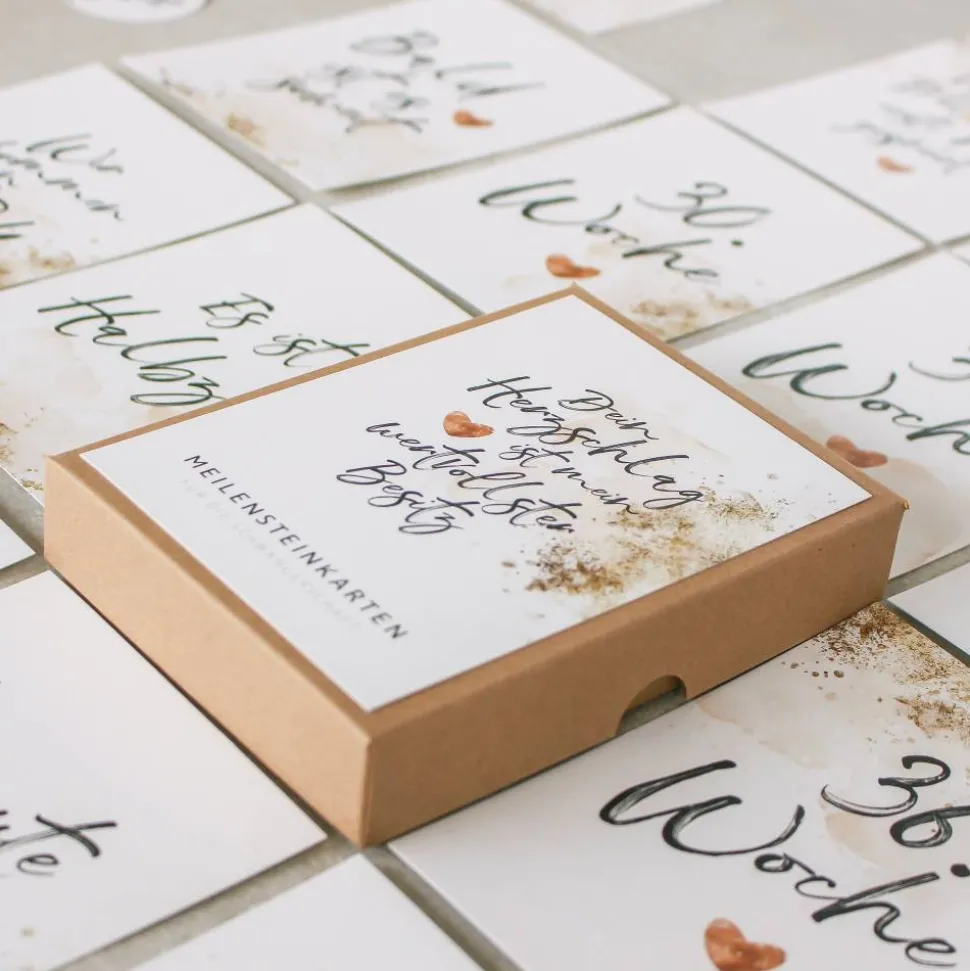 Bald
ist es
soweit
Wir
30.
Woche
Es ist
Halbz
Woch
Dein
Herzschlag
ist mein
wertvollster
Besitz
MEILENSTEINKARTEN
FÜR DIE SCHWANGERSCHAFT
36.
Woche